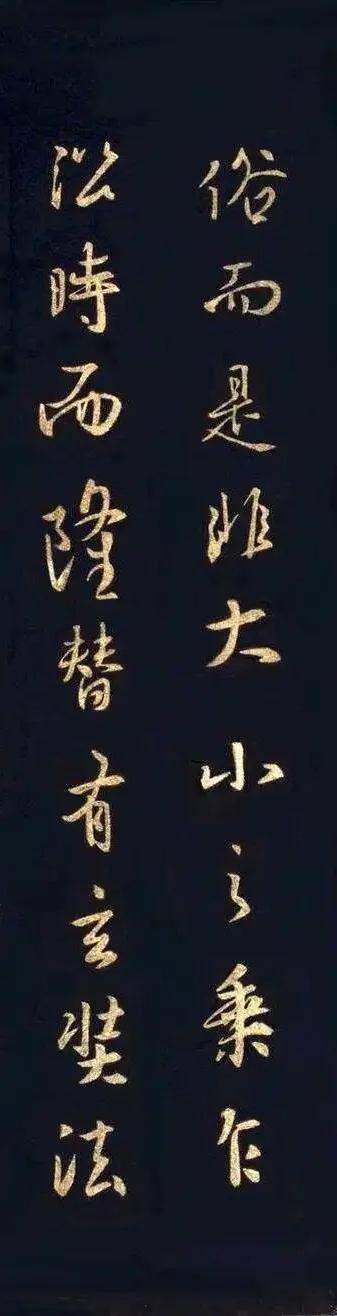 俗而是非大小之乘乍
㳂時而隆替有玄奘法